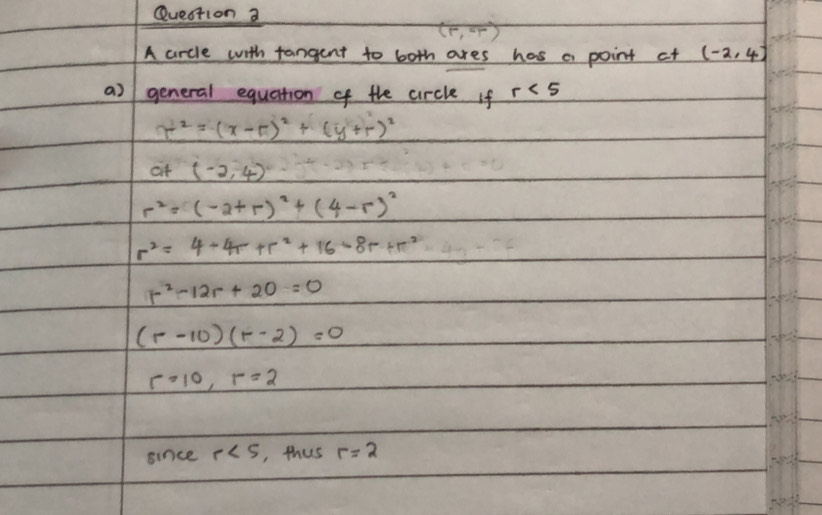 Question 2
(r, -r)
A circle with tangent to both axes has a point at (-2,4)
a) general equation of the circle if r < 5
r² = (x-r)² + (y+r)²
at (-2,4)
r² = (-2+r)² + (4-r)²
r² = 4-4r+r² + 16-8r+r²
r²-12r + 20 = 0
(r-10)(r-2) = 0
r=10, r=2
since r<5, thus r=2